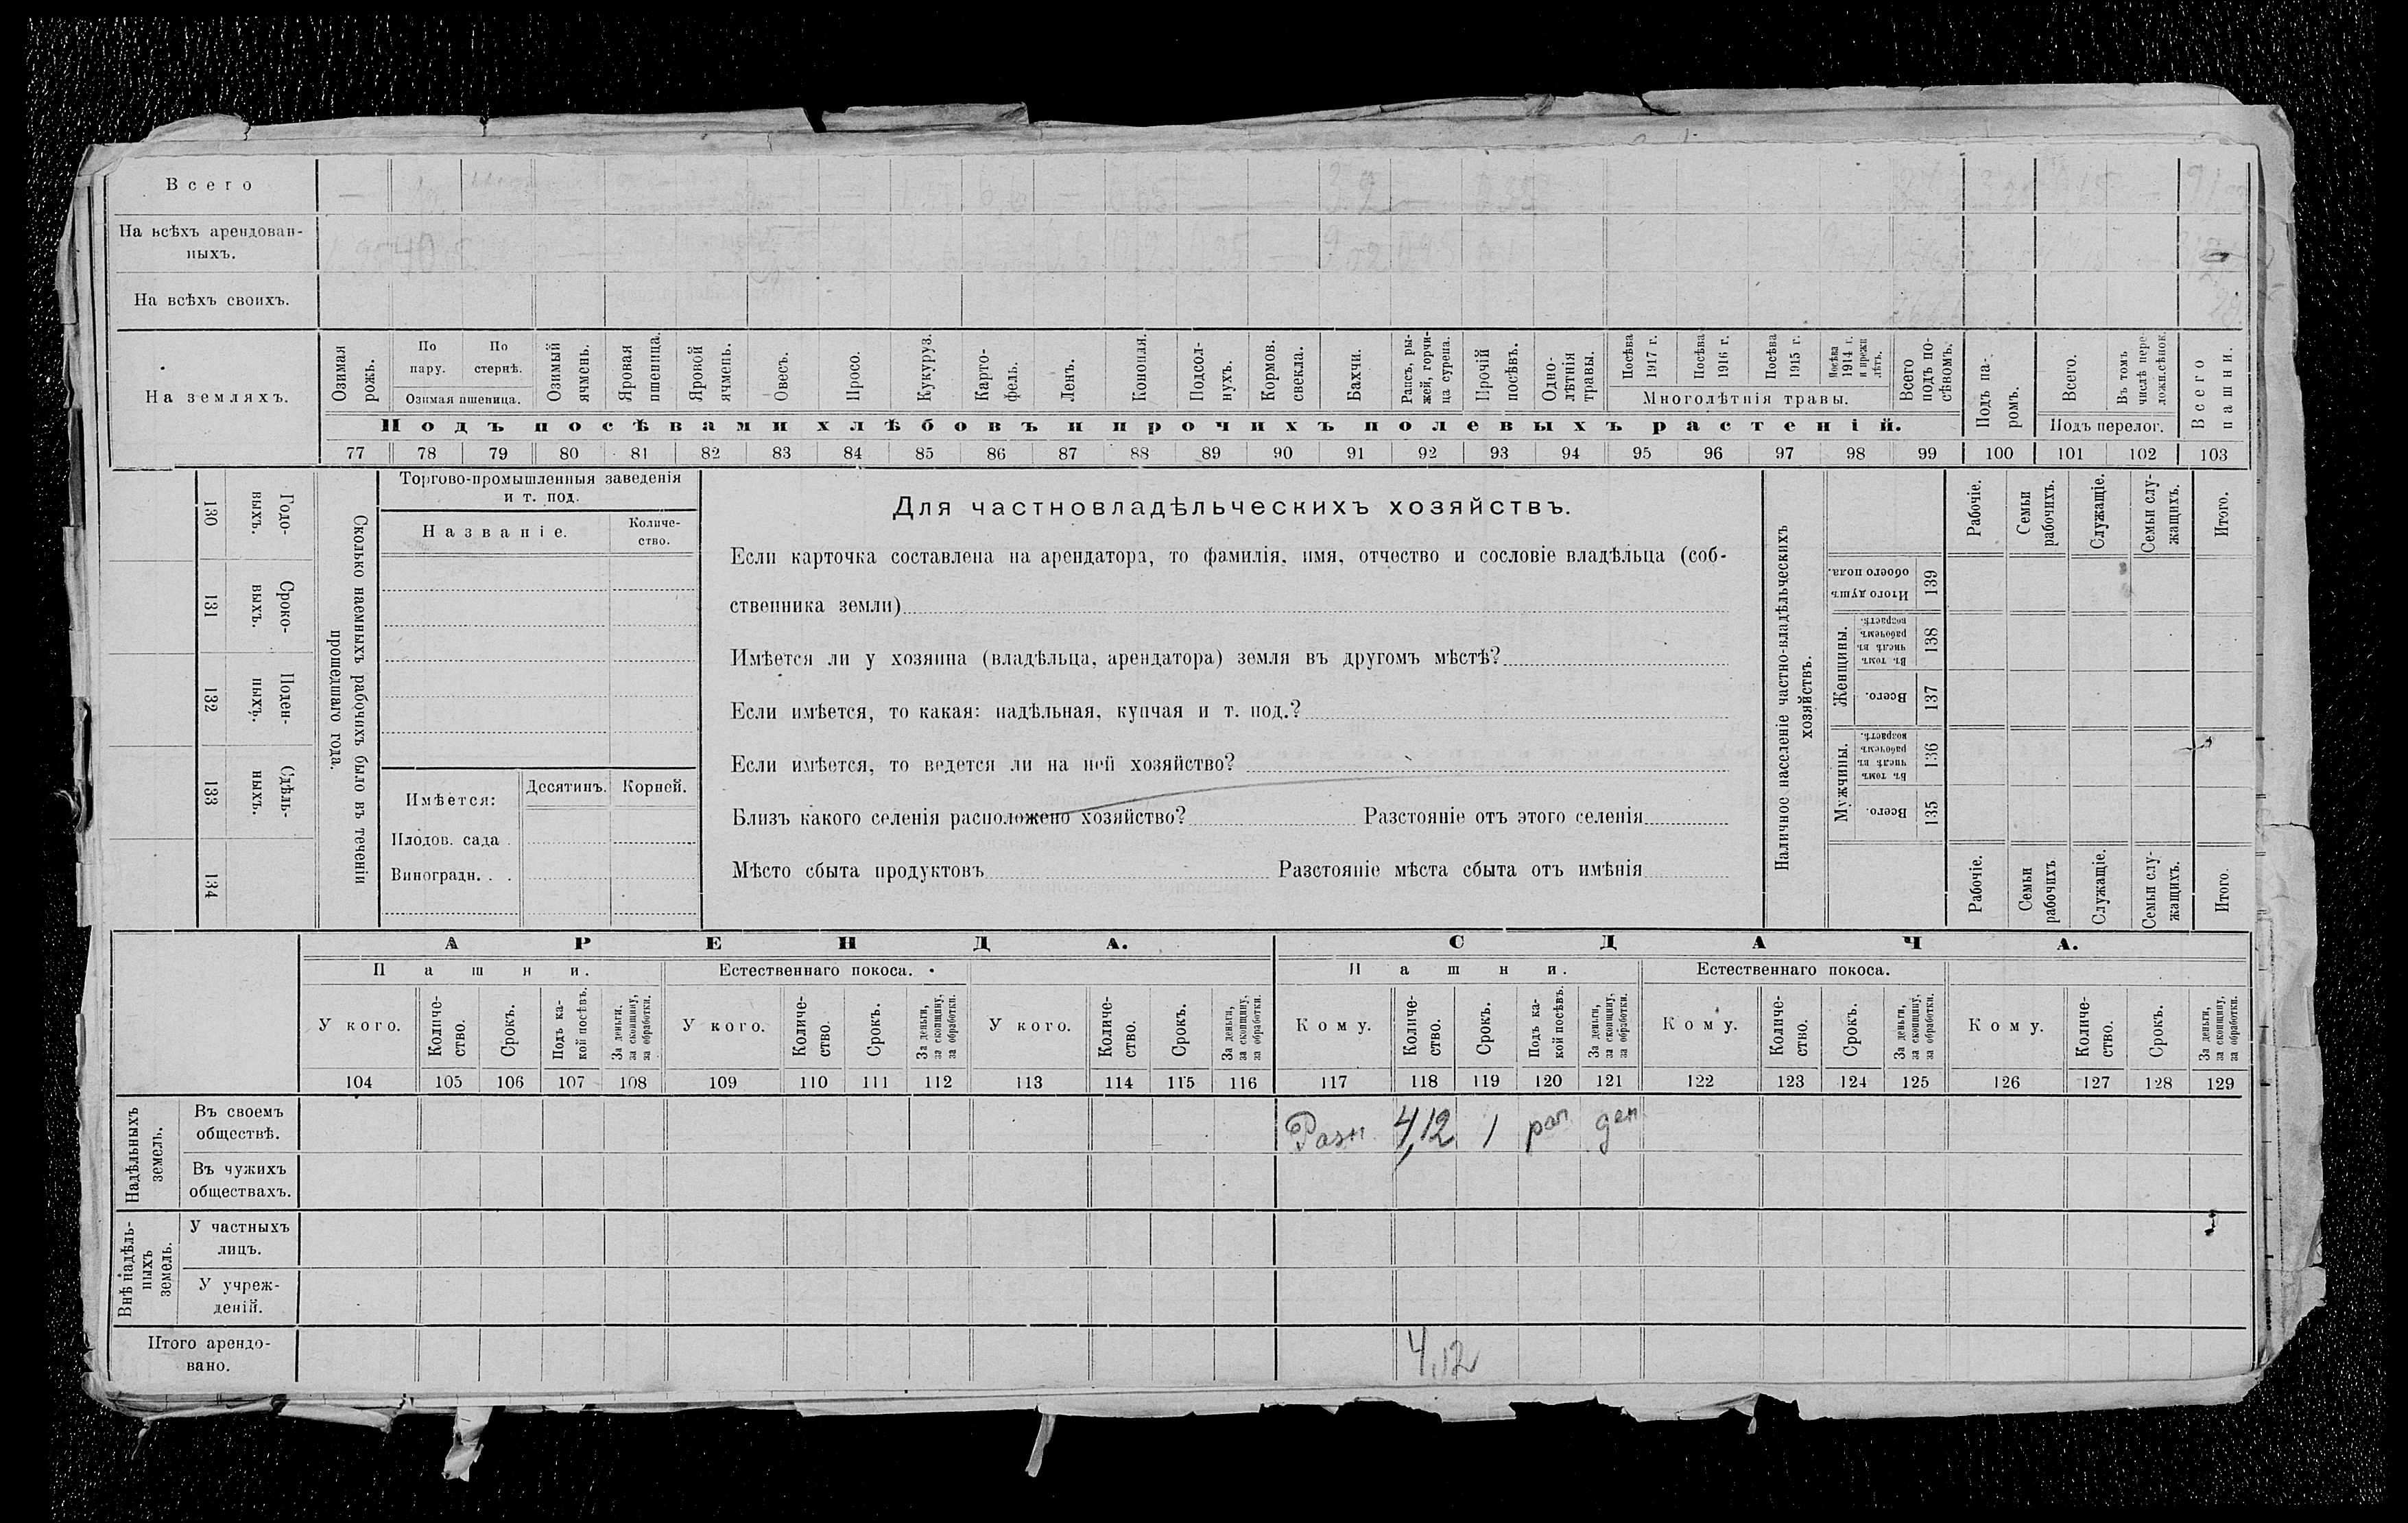 Всего
На всѣхъ арендован-
ныхъ.
На всѣхъ своихъ.
На земляхъ.
Озимая рожь.
По пару.
По стернѣ.
Озимая пшеница.
Озимый ячмень.
Яровая пшеница.
Яровой ячмень.
Овесъ.
Просо.
Кукуруз.
Карто-
фель.
Ленъ.
Конопля.
Подсол-
нухъ.
Кормов. свекла.
Бахчи.
Рапсъ, ры-
жей, горчи-
ца сурепа.
Прочій посѣвъ.
Одно-
лѣтнія травы.
Посѣва 1917 г.
Посѣва 1916 г.
Посѣва 1915 г.
Посѣва 1914 г. и прежн лѣтъ.
Многолѣтнія травы.
Всего подъ по-
сѣвомъ.
Подъ па-
ромъ.
Всего.
Въ томъ числѣ пере-
ложн.сѣнок.
Подъ перелог.
Всего пашни.
Подъ посѣвами хлѣбовъ и прочихъ полевыхъ растеній.
77 78 79 80 81 82 83 84 85 86 87 88 89 90 91 92 93 94 95 96 97 98 99 100 101 102 103
130 Годо-
выхъ.
131 Сроко-
выхъ.
132 Поден-
ныхъ.
133 Сдѣль-
ныхъ.
134
Сколько наемныхъ рабочихъ было въ теченіи
прошедшаго года.
Торгово-промышленныя заведенія
и т. под.
Названіе.
Количе-
ство.
Имѣется:
Десятинъ.
Корней.
Плодов. сада .
Виноградн. . .
Для частновладѣльческихъ хозяйствъ.
Если карточка составлена на арендатора, то фамилія, имя, отчество и сословіе владѣльца (соб-
ственника земли)
Имѣется ли у хозяина (владѣльца, арендатора) земля въ другомъ мѣстѣ?
Если имѣется, то какая: надѣльная, купчая и т. под.?
Если имѣется, то ведется ли на ней хозяйство?
Близъ какого селенія расположено хозяйство? Разстояніе отъ этого селенія
Мѣсто сбыта продуктовъ Разстояніе мѣста сбыта отъ имѣнія
Наличное населеніе частно-владѣльческихъ
хозяйствъ.
Рабочіе.
Семьи рабочихъ.
Служащіе.
Семьи слу-
жащихъ.
Итого.
Итого душъ обоего пола. 139
Женщины.
Въ томъ числѣ въ рабочемъ возрастѣ. 138
Всего. 137
Мужчины.
Въ томъ числѣ въ рабочемъ возрастѣ. 136
Всего. 135
Рабочіе.
Семьи рабочихъ
Служащіе.
Семьи слу-
жащихъ.
Итого.
АРЕНДА.
СДАЧА.
Пашни.
Естественнаго покоса.
Пашни.
Естественнаго покоса.
У кого.
Количе-
ство.
Срокъ.
Подъ ка-
кой посѣвъ.
За деньги, за скопщину, за обработки.
У кого.
Количе-
ство.
Срокъ.
За деньги, за скопщину, за обработки.
У кого.
Количе-
ство.
Срокъ.
За деньги, за скопщину, за обработки.
Кому.
Количе-
ство.
Срокъ.
Подъ ка-
кой посѣвъ.
За деньги, за скопщину, за обработки.
Кому.
Количе-
ство.
Срокъ.
За деньги, за скопщину, за обработки.
Кому.
Количе-
ство.
Срокъ.
За деньги, за скопщину, за обработки.
104 105 106 107 108 109 110 111 112 113 114 115 116 117 118 119 120 121 122 123 124 125 126 127 128 129
Надѣльныхъ земель.
Въ своемъ
обществѣ.
Разн. 4,12 1 ден
Въ чужихъ
обществахъ.
Внѣ надѣль-
ныхъ земель.
У частныхъ
лицъ.
У учреж-
деній.
Итого арендо-
вано.
4,12